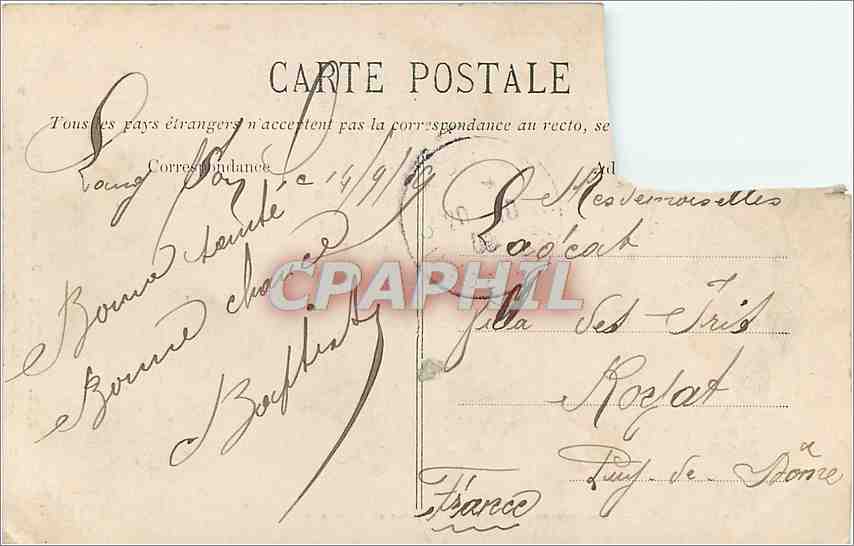 CARTE POSTALE
Tous les pays étrangers n'acceptent pas la correspondance au recto, se
Correspondance
Ad
Lang Son le 14/9/09
Bonne santé
Bonne chance
Baptiste
Mesdemoiselles
Villa des Iris
Royat
Puy-de-Dôme
France
CPAPHIL